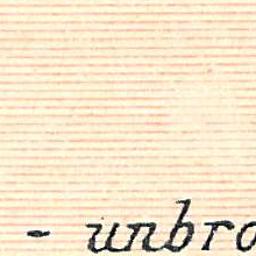 - unbro